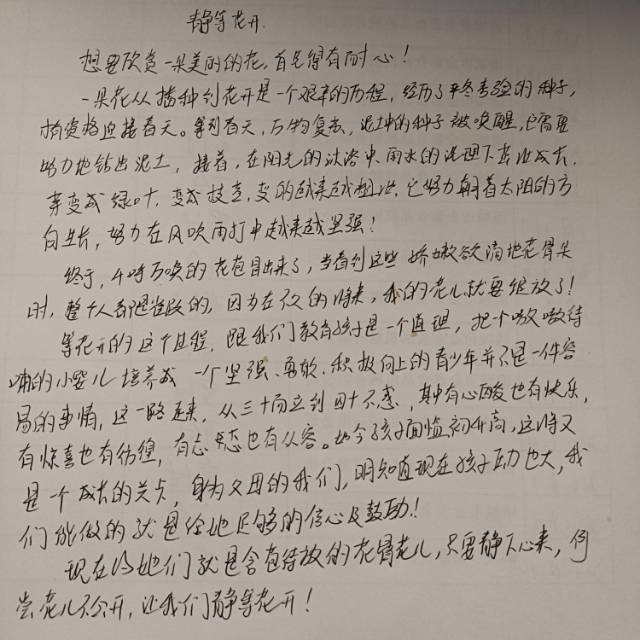 静等花开
想要欣赏一朵美丽的花,首先得有耐心!
一朵花从播种到花开是一个艰辛的历程,经历了寒冬考验的种子,
有资格迎接春天。等到春天,万物复苏,泥土中的种子被唤醒,它需要
努力地钻出泥土,接着,在阳光的沐浴中、雨水的浸润下茁壮成长,
芽变成绿叶,变成枝克,变的越来越粗壮,它努力朝着太阳的方
向生长,努力在风吹雨打中越来越坚强!
终于,千呼万唤的花苞冒出来了,当看到这些娇嫩欲滴地花骨朵
时,整个人都是雀跃的,因为在不久的将来,我的花儿就要绽放了!
等花开的这个过程,跟我们教育孩子是一个道理,把一个嗷嗷待
哺的小婴儿培养成一个坚强、勇敢、积极向上的青少年并不是一件容
易的事情,这一路走来,从三十而立到四十不惑,其中有心酸也有快乐,
有惊喜也有彷徨,有忐忑也有从容。如今孩子面临初升高,这将又
是一个成长的关卡,身为父母的我们,明知道现在孩子压力也大,我
们能做的就是给他足够的信心及鼓励!
现在的他们就是含苞待放的花骨朵儿,只要静下心来,何
尝花儿不开,让我们静等花开!